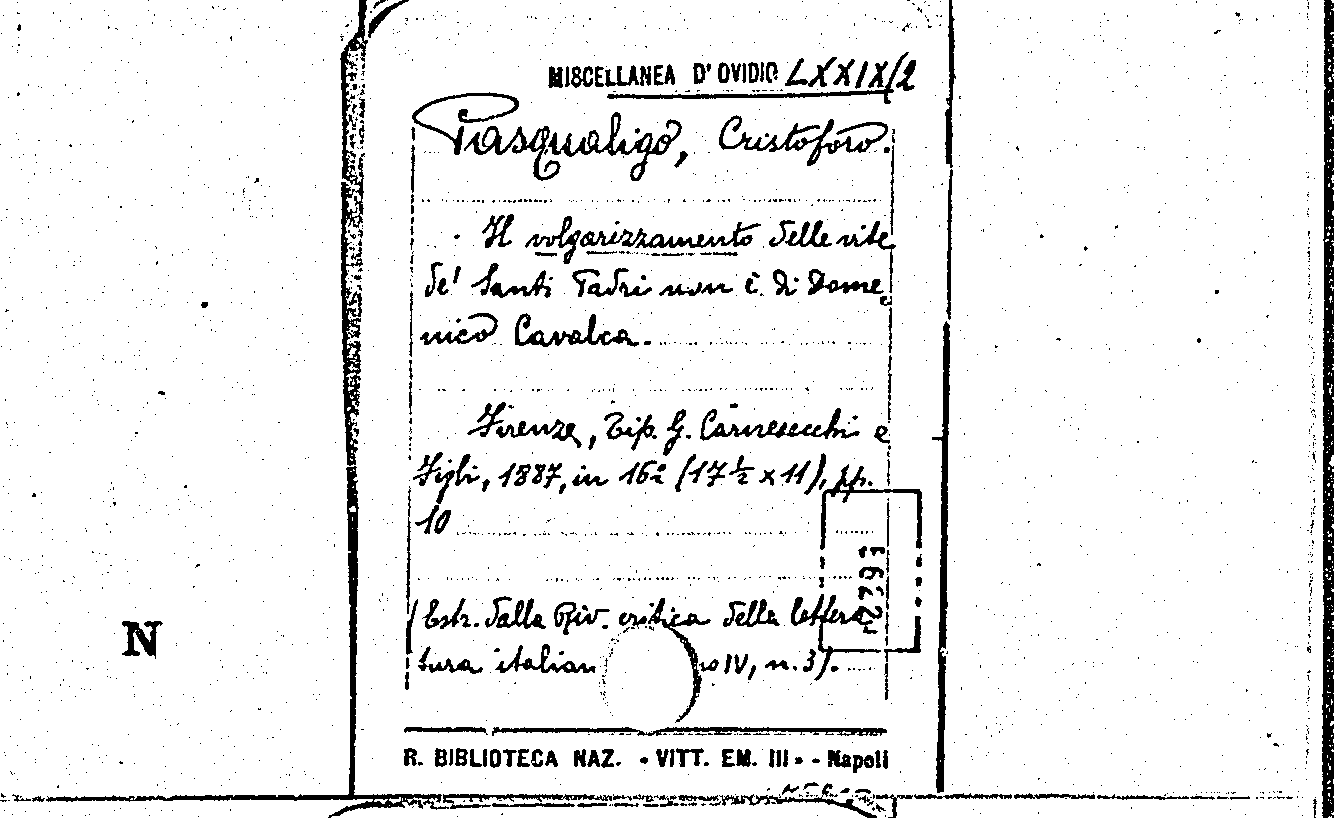 MISCELLANEA D'OVIDIO LXXIX/2
Pasqualigo, Cristoforo.
Il volgarizzamento delle vite
de' Santi Padri non è di Dome
nico Cavalca.
Firenze, Tip. G. Carnesecchi e
Figli, 1887, in 16º (17 ½ x 11), pp.
10
(Estr. dalla Riv. critica della lettera
tura italian no IV, n. 3).
N
R. BIBLIOTECA NAZ. - VITT. EM. III - - Napoli